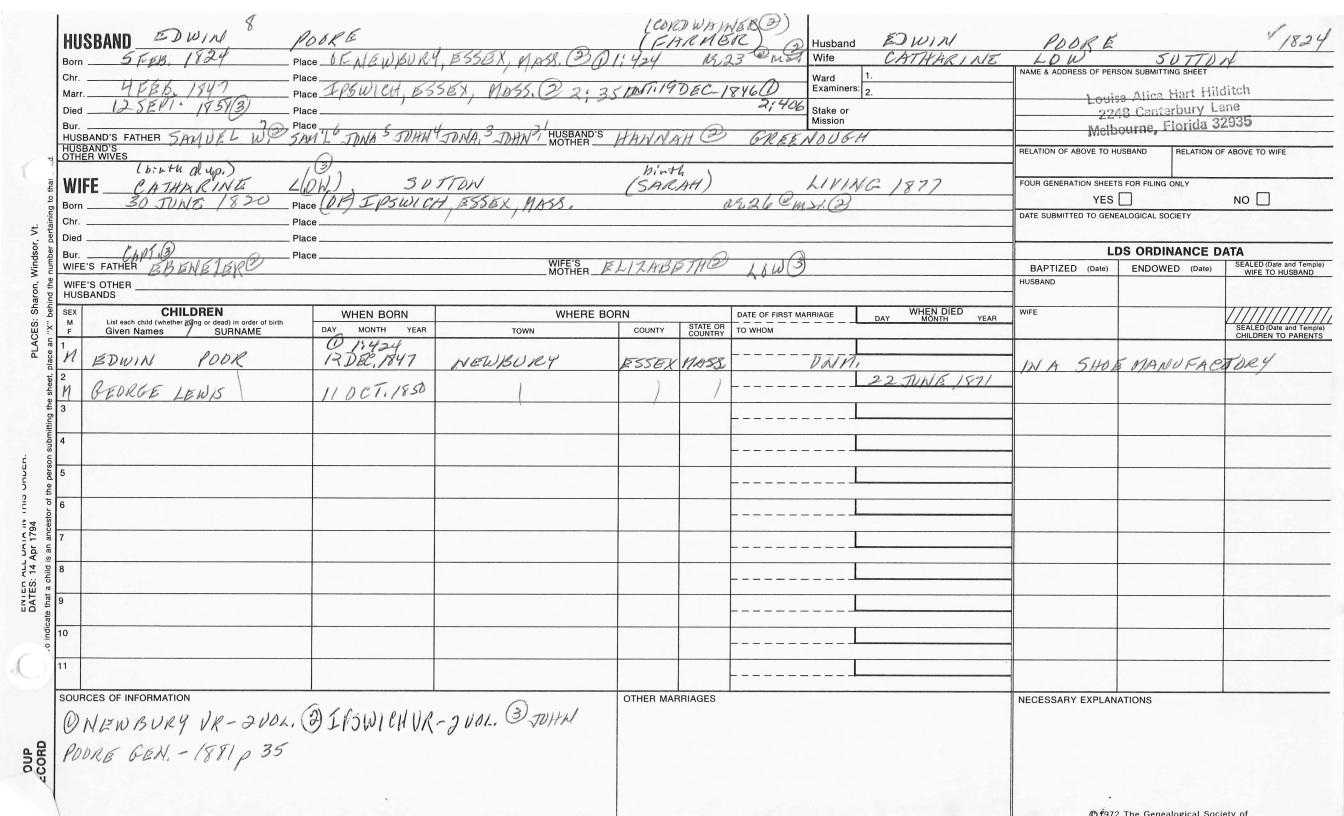 8 (CORDWAINER ②)
HUSBAND EDWIN POORE (FARMER)
Born 5 FEB. 1824 Place OF NEWBURY, ESSEX, MASS. ② ① 1:424 AE 23 @ m ②
Chr. Place
Marr. 4 FEB. 1847 Place IPSWICH, ESSEX, MASS. ② 2:35 INT: 19 DEC 1846 ①
Died 12 SEPT. 1858 ③ Place 2:406
Bur. Place
HUSBAND'S FATHER SAMUEL W.7 ② SAM'L6 JONA5 JOHN4 JONA.3 JOHN2,1 HUSBAND'S MOTHER HANNAH ② GREENOUGH
HUSBAND'S OTHER WIVES
(birth dup.) ③ birth
WIFE CATHARINE L(OW) SUTTON (SARAH) LIVING 1877
Born 30 JUNE 1820 Place (OF) IPSWICH, ESSEX, MASS. AE 26 @ ②
Chr. Place
Died Place
Bur. Place
CAPT. ③
WIFE'S FATHER EBENEZER ② WIFE'S MOTHER ELIZABETH ② LOW ③
WIFE'S OTHER HUSBANDS
✓1824
Husband EDWIN POORE
Wife CATHARINE LOW SUTTON
Ward Examiners: 1.
2.
Stake or Mission
NAME & ADDRESS OF PERSON SUBMITTING SHEET
Louise Alice Hart Hilditch
2248 Canterbury Lane
Melbourne, Florida 32935
RELATION OF ABOVE TO HUSBAND RELATION OF ABOVE TO WIFE
FOUR GENERATION SHEETS FOR FILING ONLY
YES NO
DATE SUBMITTED TO GENEALOGICAL SOCIETY
LDS ORDINANCE DATA
BAPTIZED (Date) ENDOWED (Date) SEALED (Date and Temple) WIFE TO HUSBAND
HUSBAND
WIFE
SEALED (Date and Temple) CHILDREN TO PARENTS
SEX M F
CHILDREN
List each child (whether living or dead) in order of birth
Given Names SURNAME
WHEN BORN
DAY MONTH YEAR
WHERE BORN
TOWN COUNTY STATE OR COUNTRY
DATE OF FIRST MARRIAGE
TO WHOM
WHEN DIED
DAY MONTH YEAR
① 1:424
1 M EDWIN POOR 12 DEC. 1847 NEWBURY ESSEX MASS UNM. IN A SHOE MANUFACTORY
2 M GEORGE LEWIS 11 OCT. 1850 22 JUNE 1871
3
4
5
6
7
8
9
10
11
SOURCES OF INFORMATION
① NEWBURY VR-2 VOL. ② IPSWICH VR-2 VOL. ③ JOHN
POORE GEN. - 1881 p 35
OTHER MARRIAGES
NECESSARY EXPLANATIONS
©1972 The Genealogical Society of
PLACES: Sharon, Windsor, Vt.
ENTER ALL DATA IN THIS ORDER:
DATES: 14 Apr 1794
To indicate that a child is an ancestor of the person submitting the sheet, place an "X" behind the number pertaining to that
OUP
ECORD